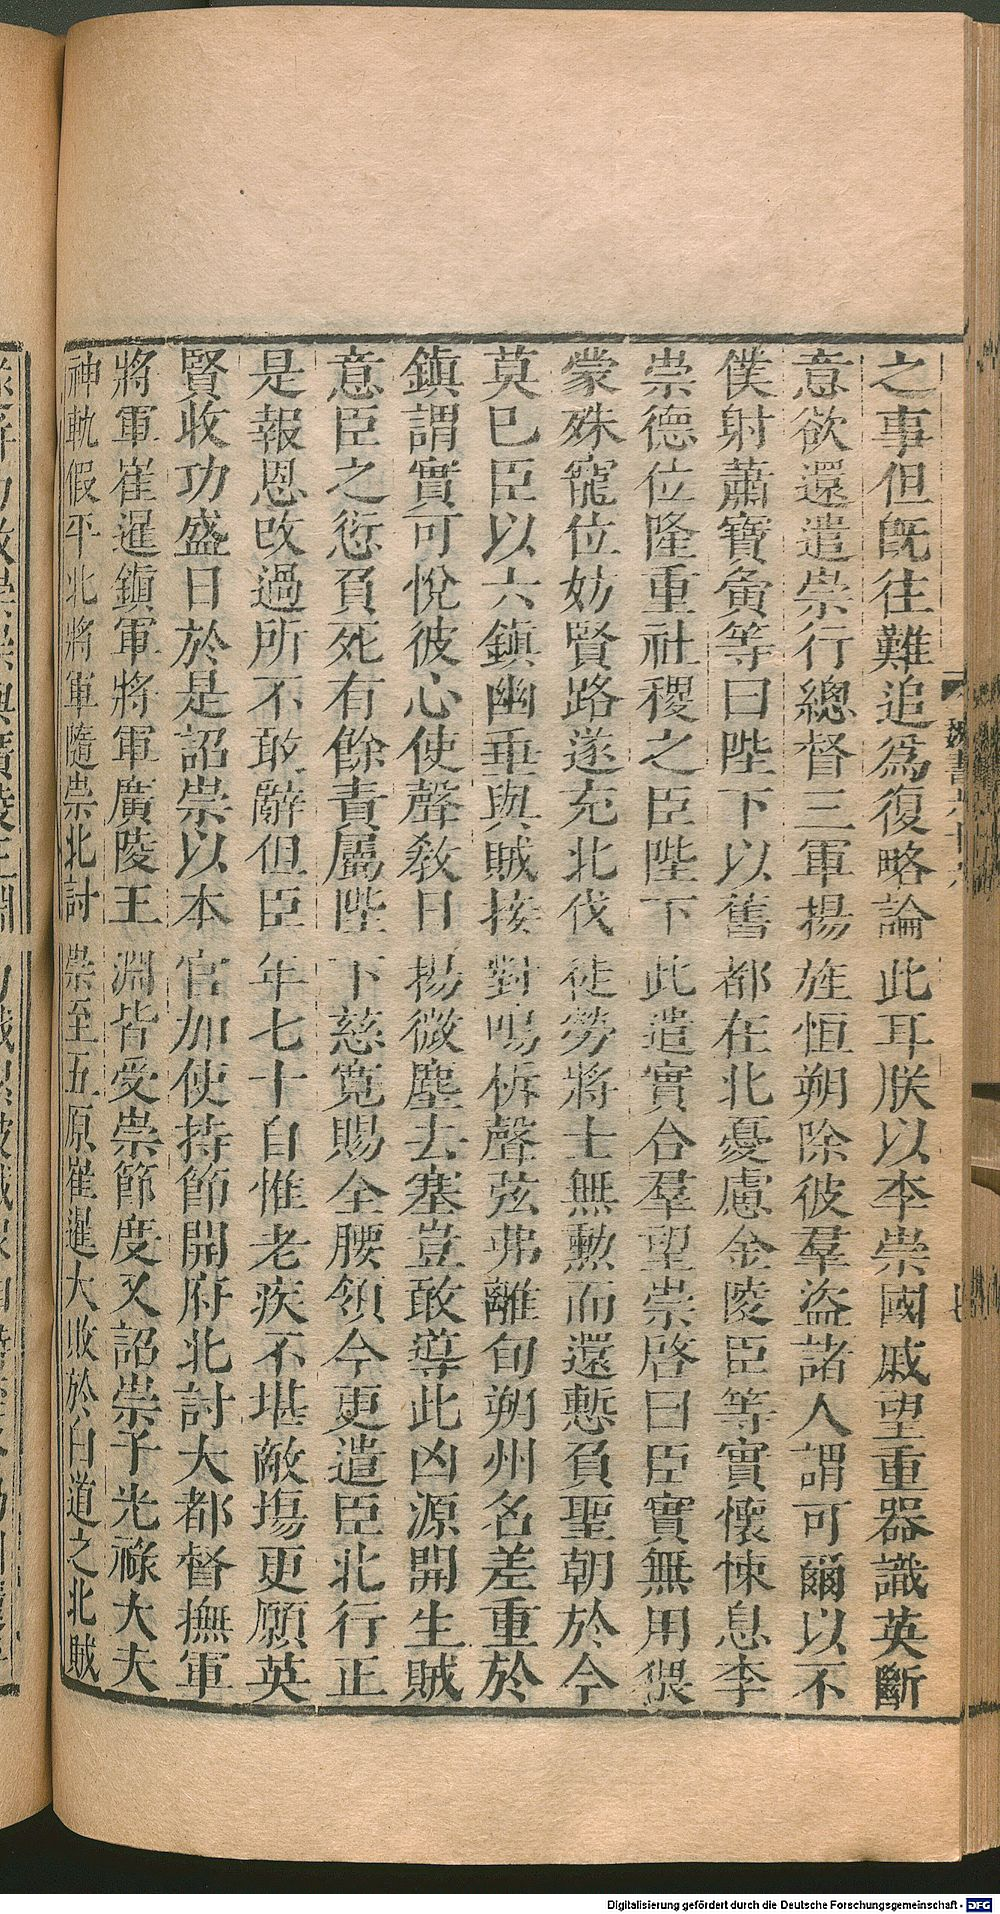 之事但旣往難追爲復略論此耳朕以李崇國戚望重器識英斷
意欲還遣崇行總督三軍揚旌恒朔除彼羣盜諸人謂可爾以不
僕射蕭寶夤等曰陛下以舊都在北憂慮金陵臣等實懷悚息李
崇德位隆重社稷之臣陛下此遣實合羣望崇啓曰臣實無用猥
蒙殊寵位妨賢路遂充北伐徒勞將士無勳而還慙負聖朝於今
莫已臣以六鎮幽垂與賊接對鳴柝聲弦弗離旬朔州名差重於
鎮謂實可悅彼心使聲敎日揚微塵去塞豈敢導此凶源開生賊
意臣之愆負死有餘責屬陛下慈寬賜全腰領今更遣臣北行正
是報恩改過所不敢辭但臣年七十自惟老疾不堪敵塲更願英
賢收功盛日於是詔崇以本官加使持節開府北討大都督撫軍
將軍崔暹鎮軍將軍廣陵王淵皆受崇節度又詔崇子光祿大夫
神軌假平北將軍隨崇北討崇至五原崔暹大敗於白道之北賊
魏書六十六
七
Digitalisierung gefördert durch die Deutsche Forschungsgemeinschaft - DFG